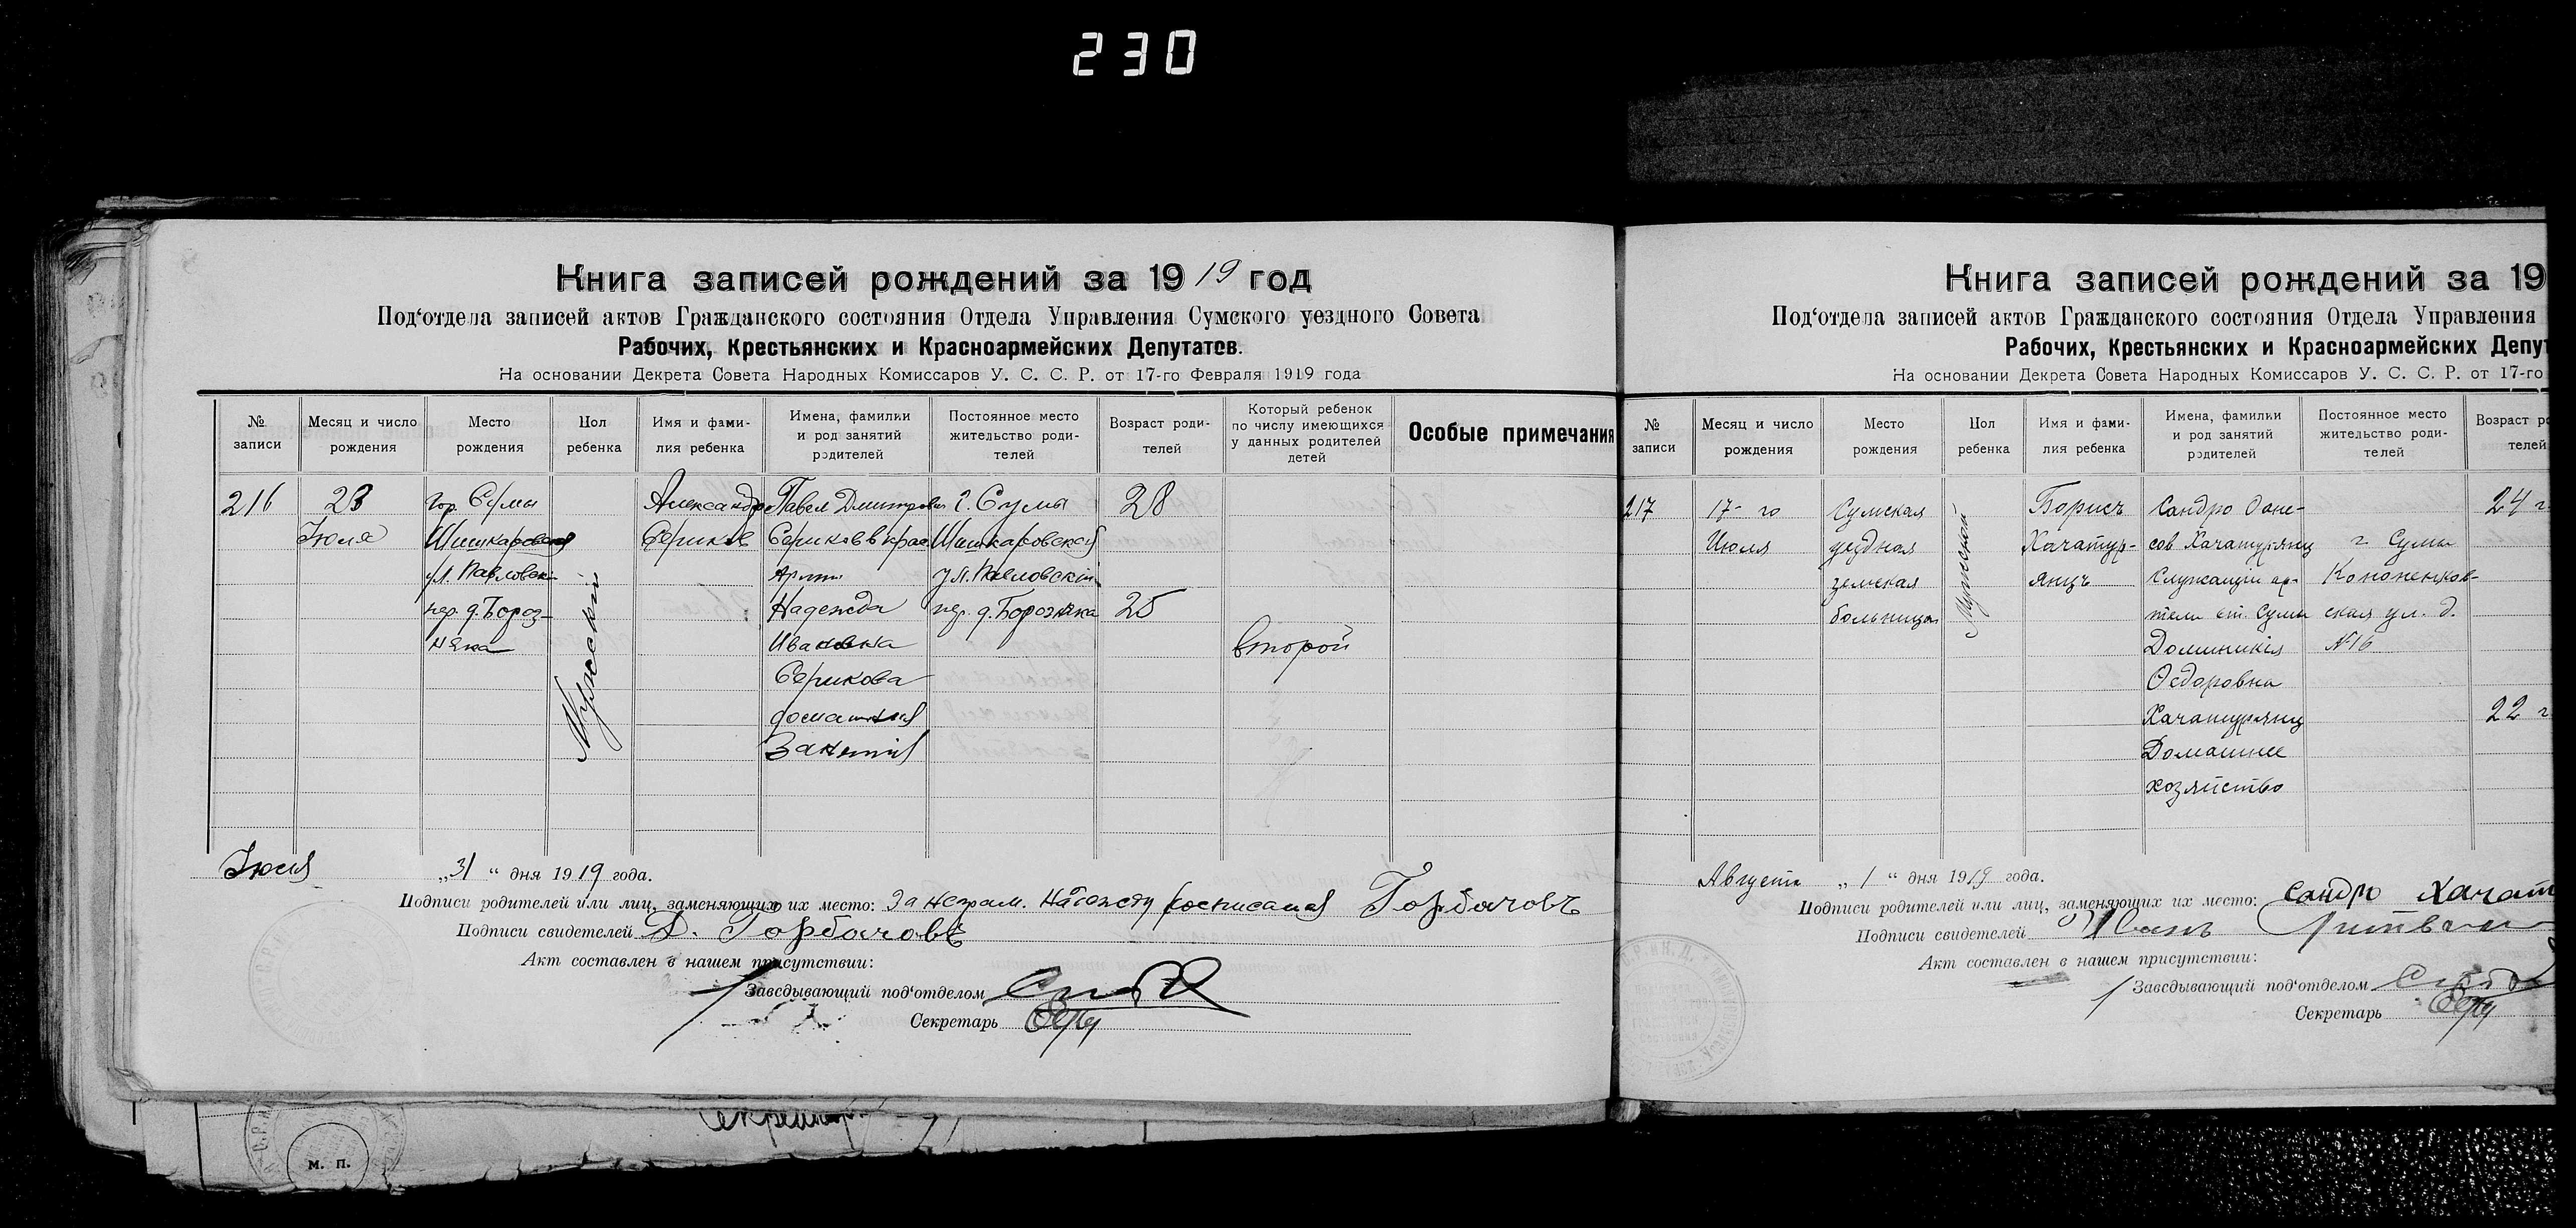 230
Книга записей рождений за 1919 год
Под‘отдела записей актов Гражданского состояния Отдела Управления Сумского уездного Совета
Рабочих, Крестьянских и Красноармейских Депутатов.
На основании Декрета Совета Народных Комиссаров У. С. С. Р. от 17-го Февраля 1919 года
№ записи
Месяц и число рождения
Место рождения
Пол ребенка
Имя и фамилия ребенка
Имена, фамилии и род занятий родителей
Постоянное место жительство родителей
Возраст родителей
Который ребенок по числу имеющихся у данных родителей детей
Особые примечания
216
23
Июля
гор. Сумы
Шишкаровская
ул. Павловскі
пер. д. Бороз-
няка
Мужскій
Александр
Сериков
Павел Дмитрович
Сериков в крас
Арміи
Надежда
Ивановна
Серикова
домашнія
Занятія
г. Сумы
Шишкаровской
ул. Павловскій
пер. д. Борозняка
28
25
второй
Июля „31“ дня 1919 года.
Подписи родителей или лиц, заменяющих их место: За неграм. Надежду росписался Горбачовъ
Подписи свидетелей Д. Горбачовъ
Акт составлен в нашем присутствии:
Заведывающий под‘отделом
Секретарь
Секретарь
м. п.
Книга записей рождений за 19
Под‘отдела записей актов Гражданского состояния Отдела Управления
Рабочих, Крестьянских и Красноармейских Депут
На основании Декрета Совета Народных Комиссаров У. С. С. Р. от 17-го
№ записи
Месяц и число рождения
Место рождения
Пол ребенка
Имя и фамилия ребенка
Имена, фамилии и род занятий родителей
Постоянное место жительство родителей
Возраст ро
телей
217
17-го
Июля
Сумская
уездная
земская
больница
Мужской
Борисъ
Хачатур-
янцъ
Сандро Оане-
сов Хачатурянц
Служащій ар-
тели ст. Сумы
Доминикія
Федоровна
Хачатурянц
Домашнее
хозяйство
г Сумы
Кононенков-
ская ул. д.
№16
24 г
22 г
Августа „1“ дня 1919 года.
Подписи родителей или лиц, заменяющих их место: Сандро Хачат
Подписи свидетелей Иванъ
Акт составлен в нашем присутствии:
Заведывающий под‘отделом
Секретарь